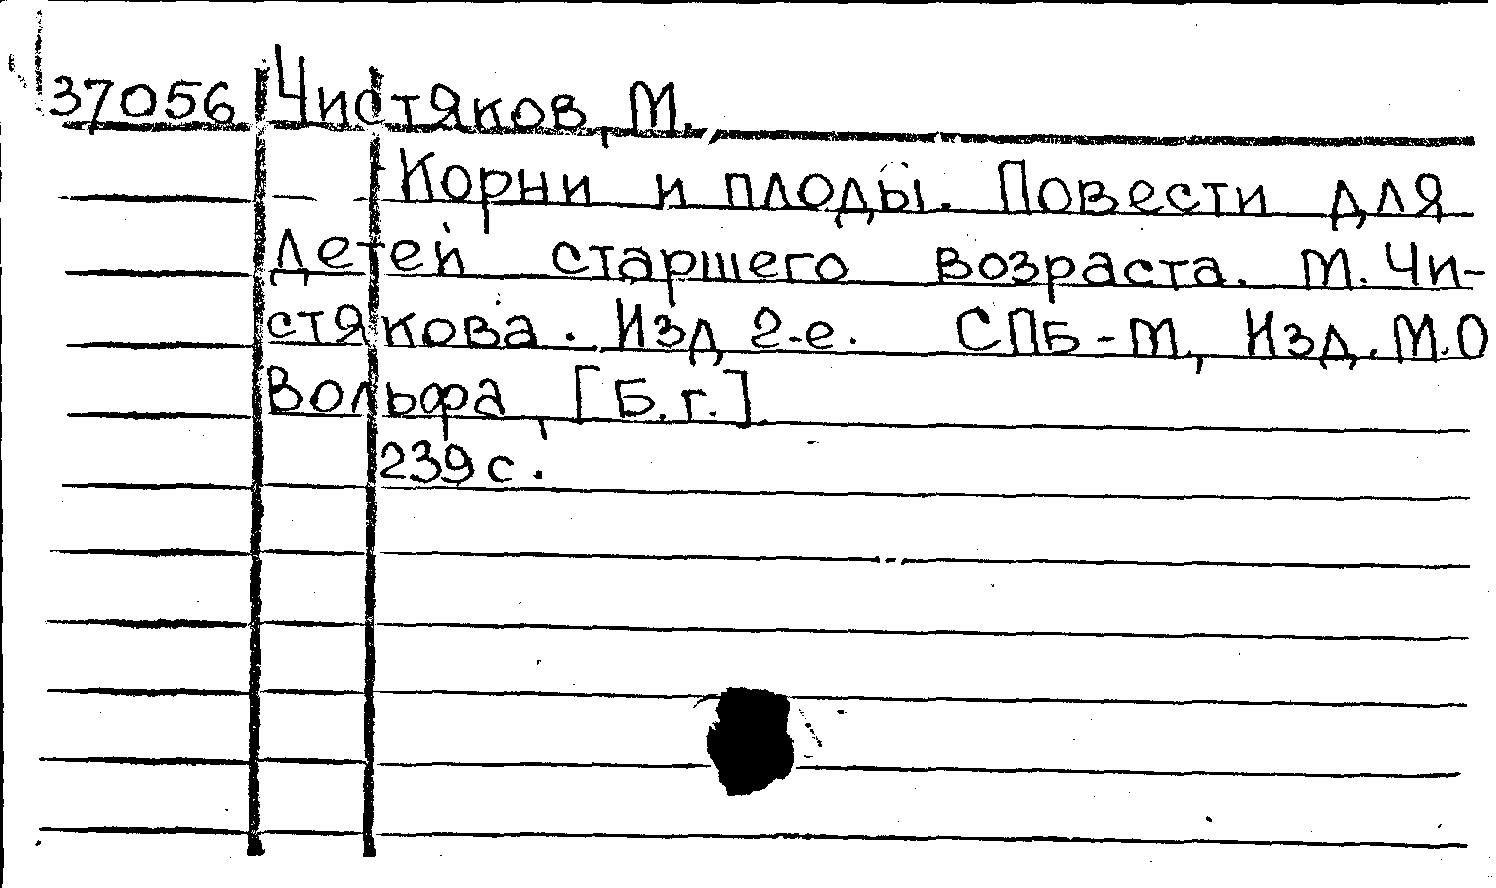 37056 Чистяков, М.
Корни и плоды. Повести для
детей старшего возраста. М. Чи-
стякова. Изд 2-е. СПБ-М., Изд. М.О
Вольфа, [Б.г.].
239 с.